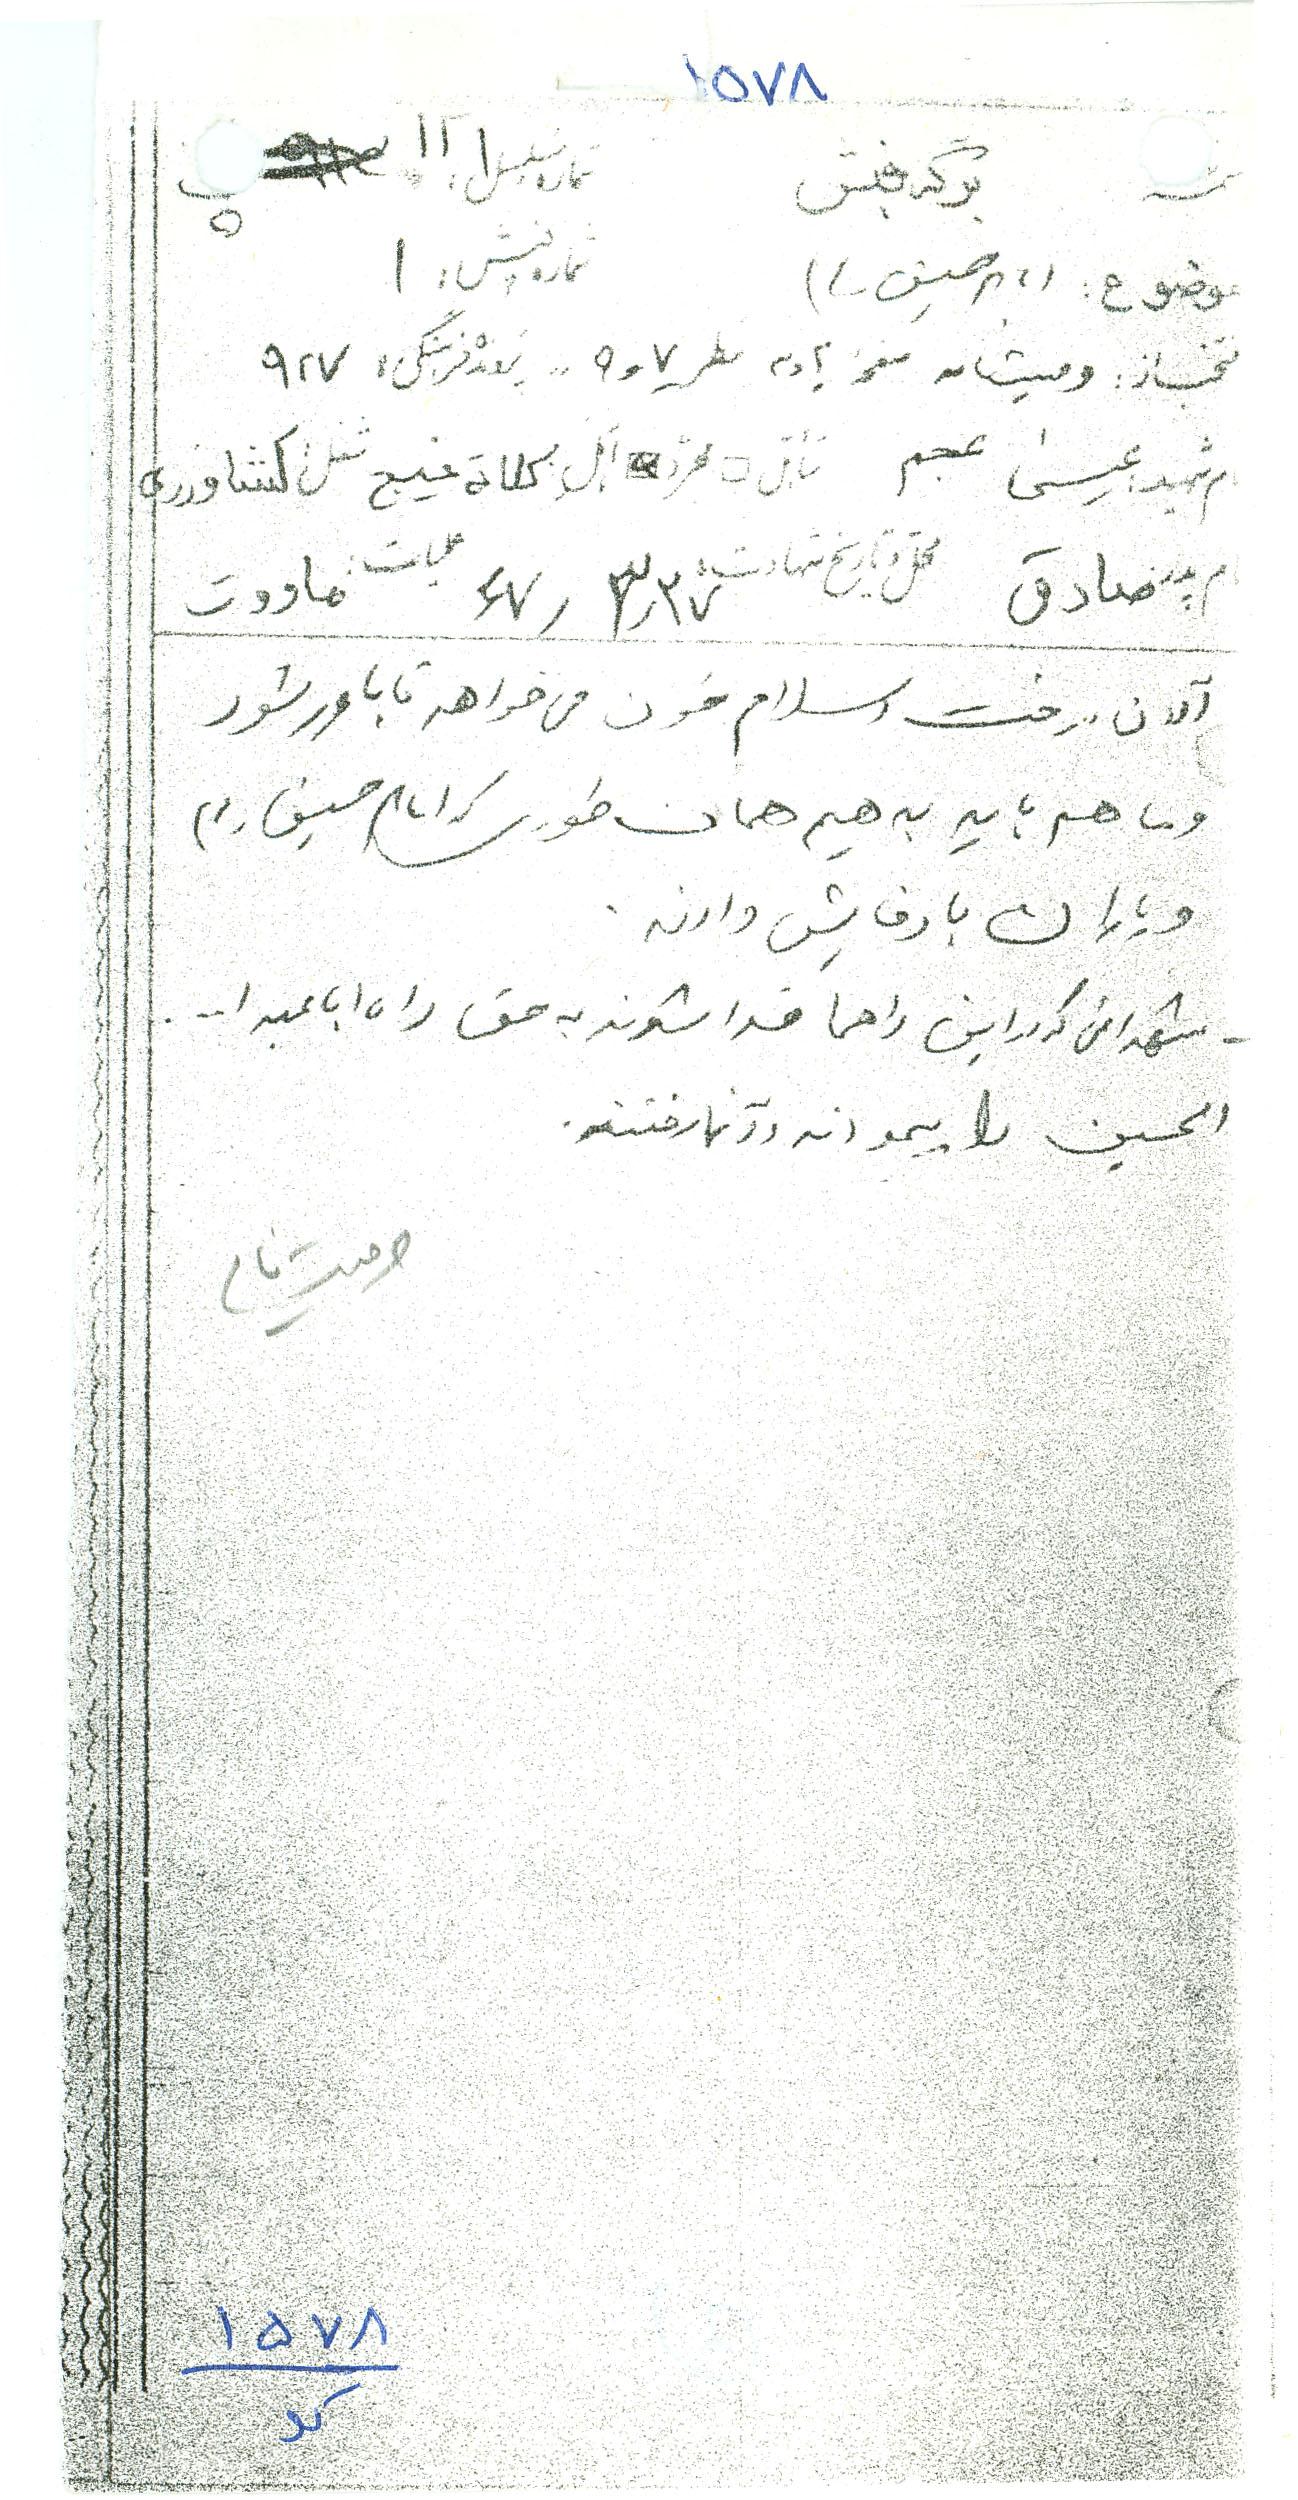 ۱۵۷۸
برگه فیش شماره مسلسل: ۱۱۲۱
موضوع: امام حسین (ع) شماره فیش: ۱
وصیتنامه صفحه دوم سطر ۷ و ۹ پرونده فرهنگی: ۹۲۷
شهید: عیسی عجم تأهل □ مجرد اهل: کلاته منیج شغل: کشاورزی
پدر: صادق محل و تاریخ شهادت: ۶۷/۳/۲۷ عملیات: ماووت
الان درخت اسلام خون می خواهد تا بارور شود
و ما هم باید بدهیم همان طوری که امام حسین (ع)
و یاران باوفایش دادند.
- شهدائی که در این راهها فدا شوند به حق راه اباعبدا...
الحسین را پیموده اند و آنها رفتند.
وصیت نامه
۱۵۷۸
کو